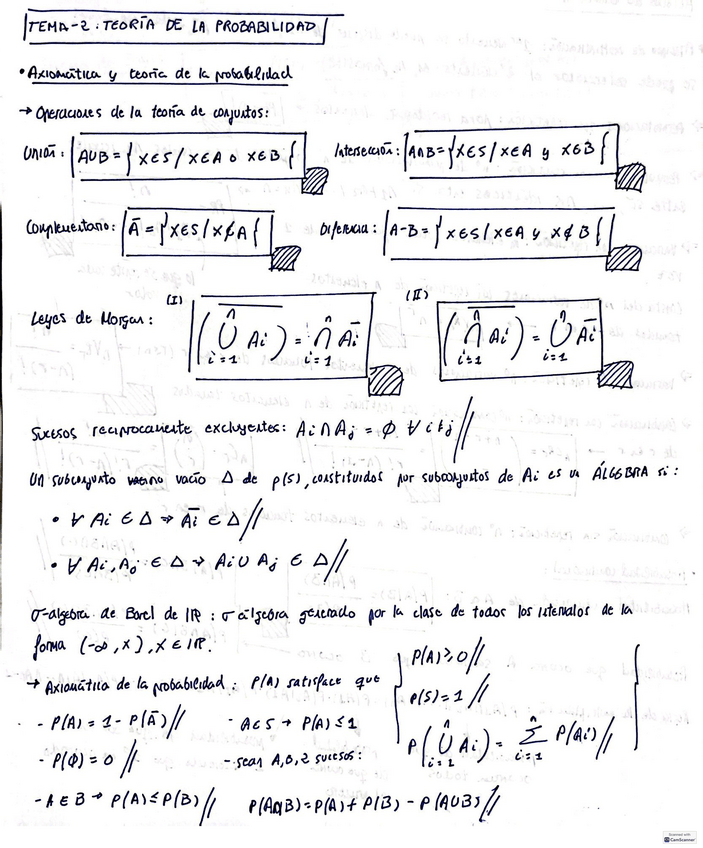 TEMA-2: TEORÍA DE LA PROBABILIDAD
• Axiomática y teoría de la probabilidad
→ Operaciones de la teoría de conjuntos:
Unión: A∪B = { x∈S / x∈A o x∈B { Intersección: A∩B = { x∈S / x∈A y x∈B {
Complementario: Ā = { x∈S / x∉A { Diferencia: A-B = { x∈S / x∈A y x∉B {
Leyes de Morgan: (I) \overline{(⋃_{i=1}^{n} Ai)} = ⋂_{i=1}^{n} \overline{Ai} (II) \overline{(⋂_{i=1}^{n} Ai)} = ⋃_{i=1}^{n} \overline{Ai}
Sucesos recíprocamente excluyentes: Ai ∩ Aj = ∅ ∀ i≠j //
Un subconjunto vacío Δ de p(S), constituidos por subconjuntos de Ai es un ÁLGEBRA si:
• ∀ Ai ∈ Δ → \overline{Ai} ∈ Δ //
• ∀ Ai, Aj ∈ Δ → Ai ∪ Aj ∈ Δ //
σ-algebra de Borel de IR: σ algebra generado por la clase de todos los intervalos de la
forma (-∞, x), x ∈ IR.
→ Axiomática de la probabilidad: P(A) satisface que { P(A) ≥ 0 //
P(S) = 1 //
P(⋃_{i=1}^{n} Ai) = Σ_{i=1}^{n} P(Ai) //
- P(A) = 1 - P(Ā) // - A∈S → P(A) ≤ 1
- P(∅) = 0 // - sean A, B, 2 sucesos:
- A ∈ B → P(A) ≤ P(B) // P(A∩B) = P(A) + P(B) - P(A∪B) //
Scanned with
CamScanner